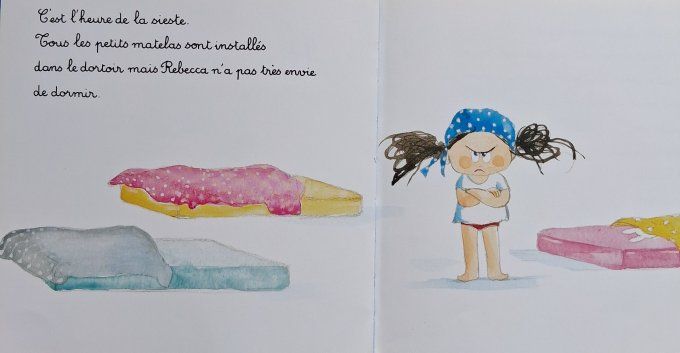 C'est l'heure de la sieste.
Tous les petits matelas sont installés
dans le dortoir mais Rebecca n'a pas très envie
de dormir.